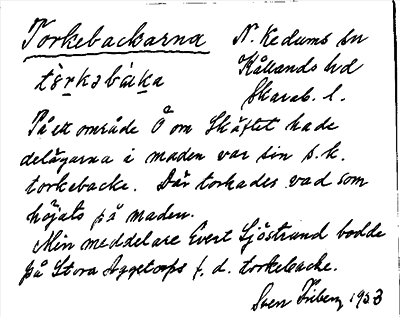 Torkebackarna
N. Kedums sn
Kållands hd
Skarab. l.
På ett område Ö om Skäftet hade
delägarna i maden var sin s.k.
torkebacke. Där torkades vad som
höjats på maden.
Min meddelare Evert Sjöstrand bodde
på Stora Aggetorps f.d. torkebacke.
Sven Friberg 1953